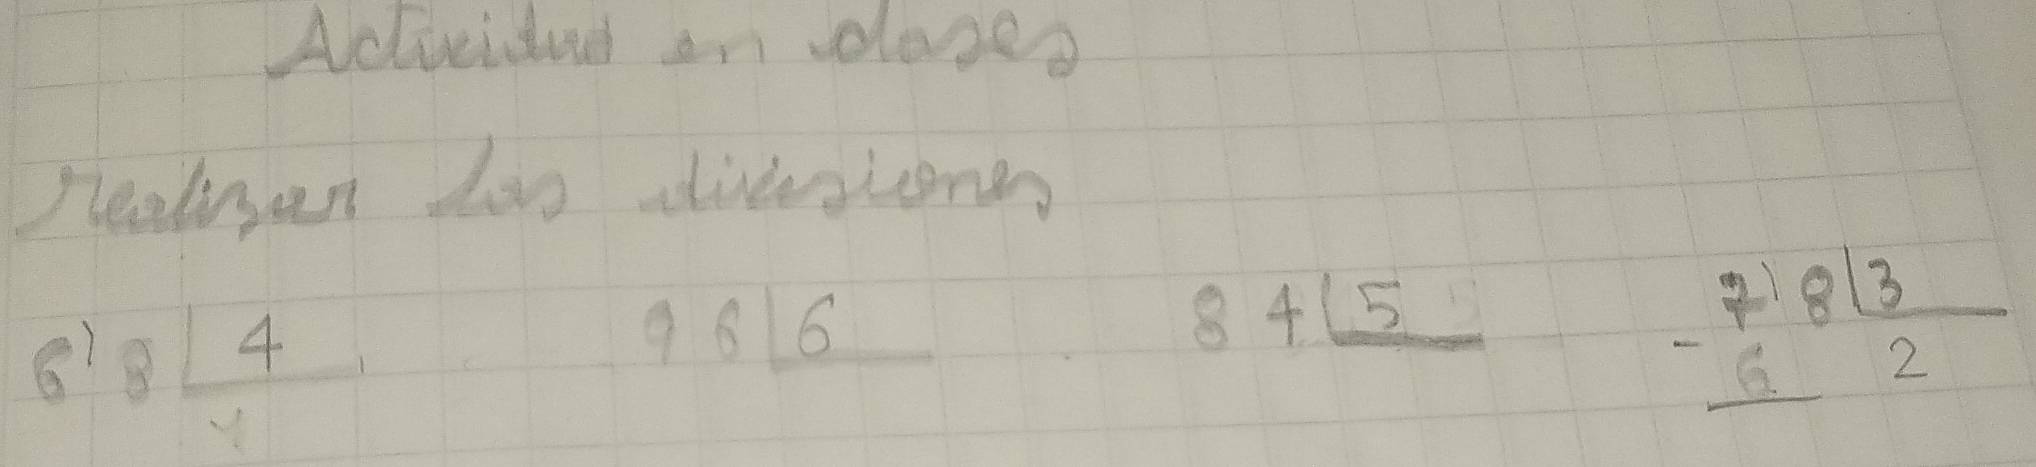 Actividad en clases
realizan las divisiones
6'8 4 96 6 84 5 7'8 3
- 6 2